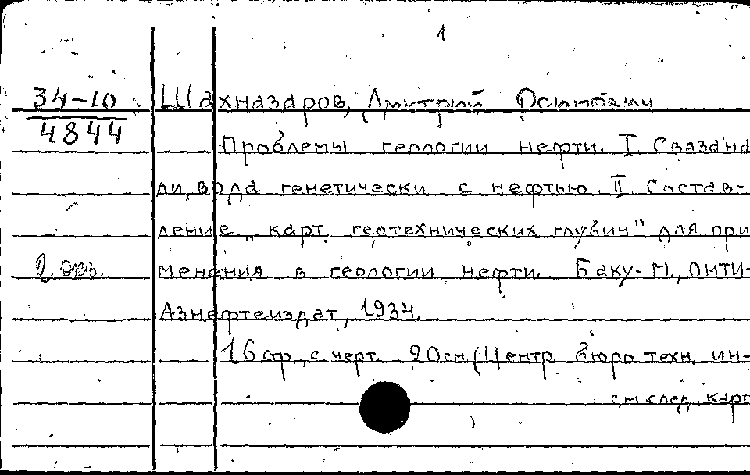 1
34-10 Шахназаров, Дмитрий Осипович
4844
Проблемы геологии нефти. I. Связана
ли, вода генетически с нефтью. II. Состав-
ление „карт геотехнических глубин" для при
2 экз. менения в геологии нефти. Баку-М., ОНТИ-
Азнефтеиздат, 1934.
16 стр., с черт. 20см (Центр бюро техн. ин-
см след. карт